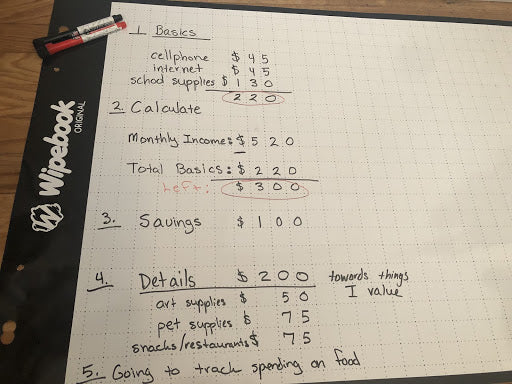 1. Basics
cellphone $ 45
internet $ 45
school supplies $ 130
220
2. Calculate
Monthly Income: $ 520
Total Basics: $ 220
Left: $ 300
3. Savings $ 100
4. Details $ 200 towards things
I value
art supplies $ 50
pet supplies $ 75
snacks/restaurants $ 75
5. Going to track spending on food
Wipebook
ORIGINAL